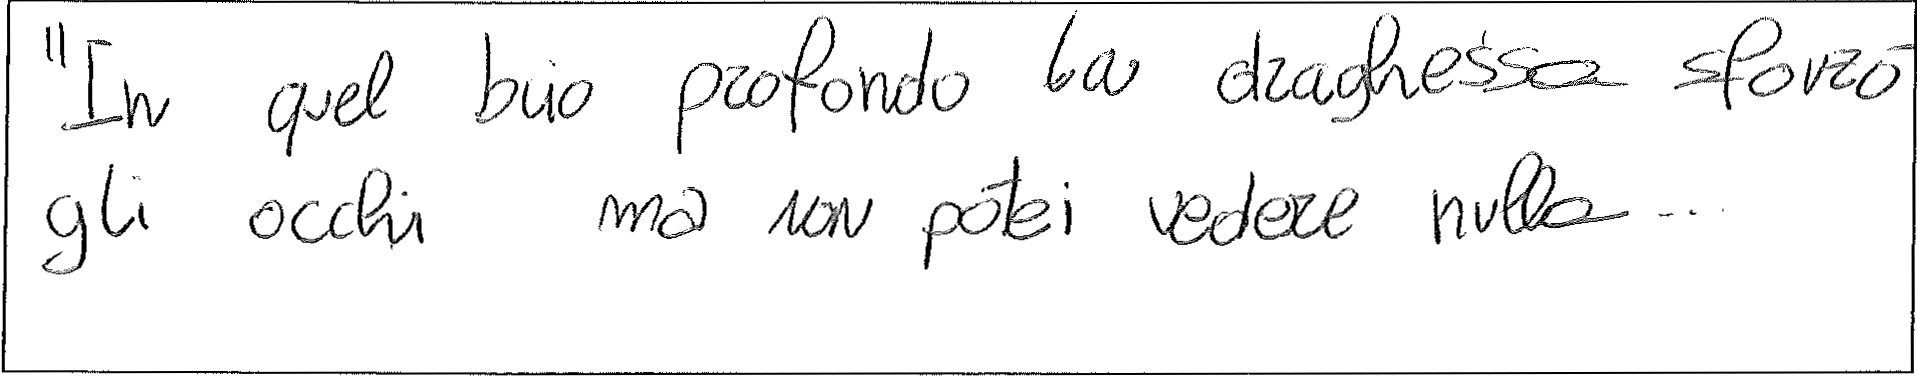 "In quel buio profondo la draghessa sforzò
gli occhi ma non potei vedere nulla...